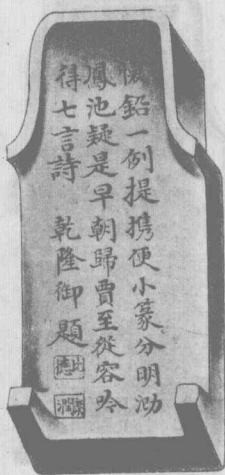 懷鉛一例提攜便小篆分明泐
鳳池疑是早朝歸賈至從容吟
得七言詩 乾隆御題
比德
朗潤